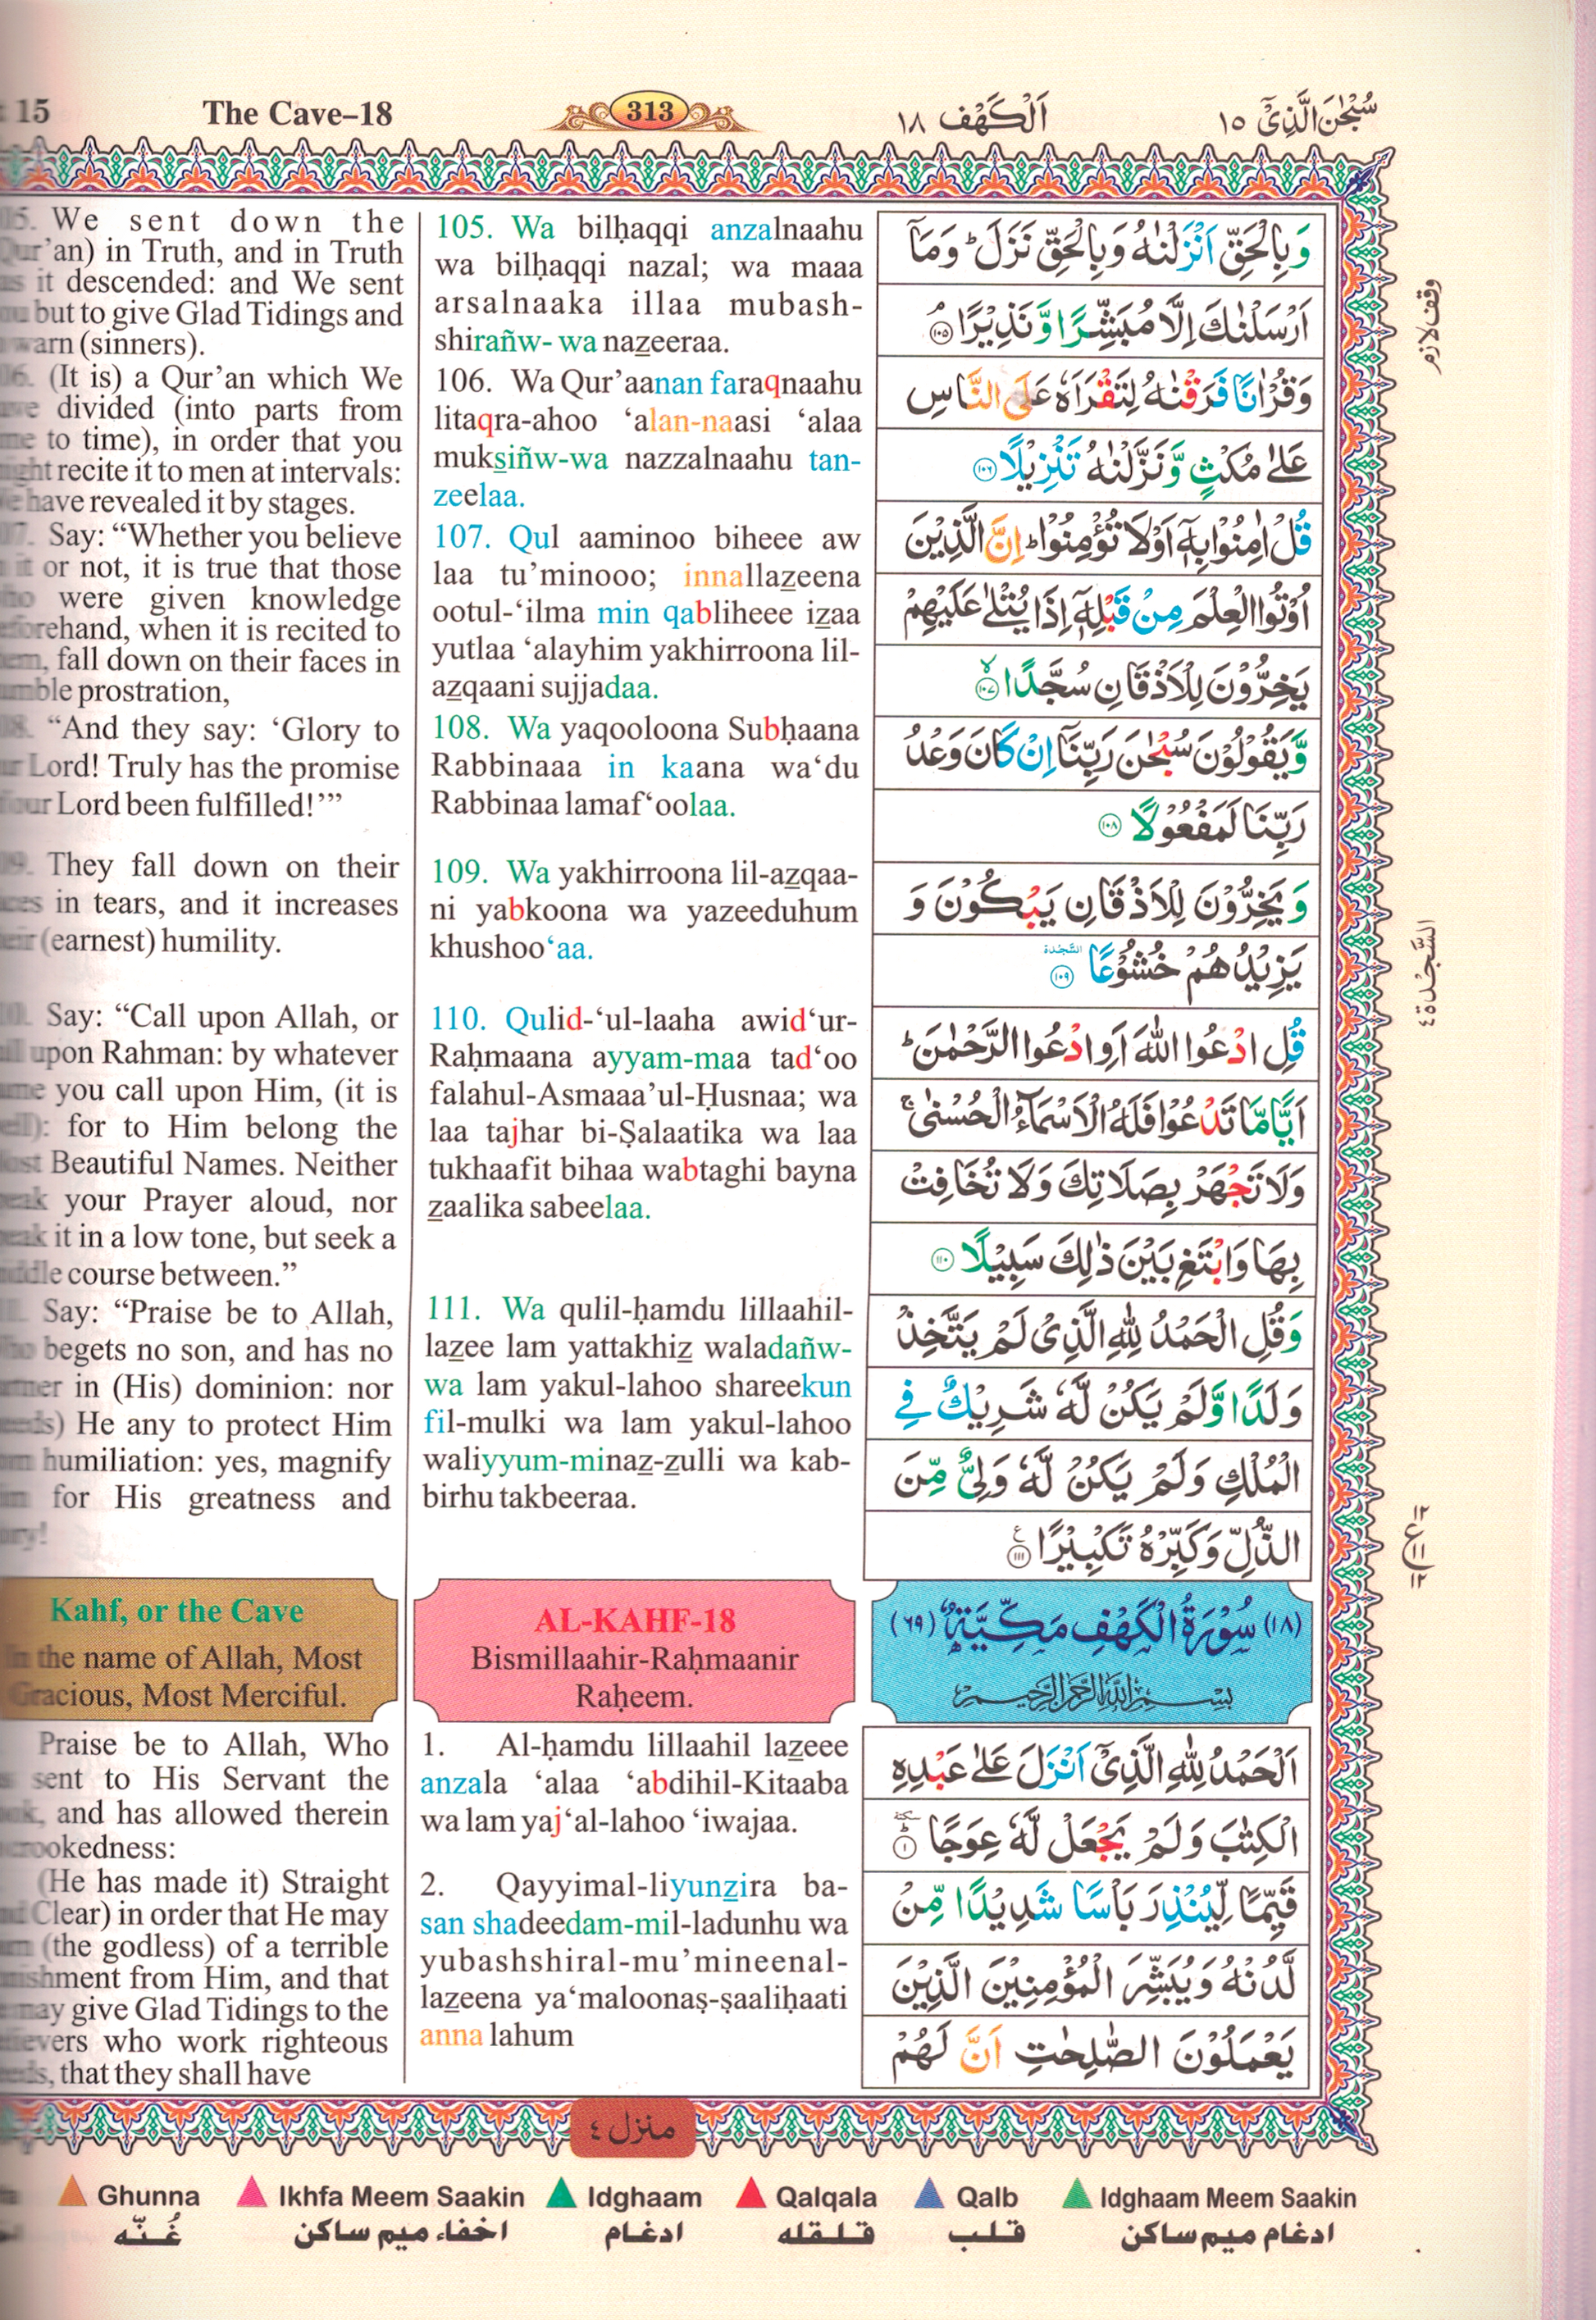 15 The Cave–18 313 اَلْكَهْف ١٨ سُبْحٰنَ الَّذِیْۤ ١٥
We sent down the
Qur’an) in Truth, and in Truth
it descended: and We sent
but to give Glad Tidings and
warn (sinners).
(It is) a Qur’an which We
divided (into parts from
to time), in order that you
recite it to men at intervals:
have revealed it by stages.
Say: “Whether you believe
it or not, it is true that those
were given knowledge
when it is recited to
fall down on their faces in
prostration,
“And they say: ‘Glory to
Lord! Truly has the promise
our Lord been fulfilled!’”
They fall down on their
in tears, and it increases
(earnest) humility.
Say: “Call upon Allah, or
upon Rahman: by whatever
you call upon Him, (it is
for to Him belong the
Beautiful Names. Neither
your Prayer aloud, nor
it in a low tone, but seek a
course between.”
Say: “Praise be to Allah,
begets no son, and has no
in (His) dominion: nor
He any to protect Him
humiliation: yes, magnify
for His greatness and
105. Wa bilḥaqqi anzalnaahu
wa bilḥaqqi nazal; wa maaa
arsalnaaka illaa mubash-
shirañw- wa nazeeraa.
106. Wa Qur’aanan faraqnaahu
litaqra-ahoo ‘alan-naasi ‘alaa
muksiñw-wa nazzalnaahu tan-
zeelaa.
107. Qul aaminoo biheee aw
laa tu’minooo; innallazeena
ootul-‘ilma min qabliheee izaa
yutlaa ‘alayhim yakhirroona lil-
azqaani sujjadaa.
108. Wa yaqooloona Subḥaana
Rabbinaaa in kaana wa‘du
Rabbinaa lamaf‘oolaa.
109. Wa yakhirroona lil-azqaa-
ni yabkoona wa yazeeduhum
khushoo‘aa.
110. Qulid-‘ul-laaha awid‘ur-
Raḥmaana ayyam-maa tad‘oo
falahul-Asmaaa’ul-Ḥusnaa; wa
laa tajhar bi-Ṣalaatika wa laa
tukhaafit bihaa wabtaghi bayna
zaalika sabeelaa.
111. Wa qulil-ḥamdu lillaahil-
lazee lam yattakhiz waladañw-
wa lam yakul-lahoo shareekun
fil-mulki wa lam yakul-lahoo
waliyyum-minaz-zulli wa kab-
birhu takbeeraa.
وَبِالْحَقِّ اَنْزَلْنٰهُ وَبِالْحَقِّ نَزَلَ ؕ وَمَاۤ
اَرْسَلْنٰكَ اِلَّا مُبَشِّرًا وَّنَذِيْرًا ۘ ١٠٥
وَقُرْاٰنًا فَرَقْنٰهُ لِتَقْرَاَهٗ عَلَى النَّاسِ
عَلٰى مُكْثٍ وَّنَزَّلْنٰهُ تَنْزِيْلًا ١٠٦
قُلْ اٰمِنُوْا بِهٖۤ اَوْ لَا تُؤْمِنُوْا ؕ اِنَّ الَّذِيْنَ
اُوْتُوا الْعِلْمَ مِنْ قَبْلِهٖۤ اِذَا يُتْلٰى عَلَيْهِمْ
يَخِرُّوْنَ لِلْاَذْقَانِ سُجَّدًا ۙ ١٠٧
وَّيَقُوْلُوْنَ سُبْحٰنَ رَبِّنَاۤ اِنْ كَانَ وَعْدُ
رَبِّنَا لَمَفْعُوْلًا ١٠٨
وَيَخِرُّوْنَ لِلْاَذْقَانِ يَبْكُوْنَ وَ
يَزِيْدُهُمْ خُشُوْعًا السَّجْدَة ١٠٩
قُلِ ادْعُوا اللّٰهَ اَوِ ادْعُوا الرَّحْمٰنَ ؕ
اَيًّا مَّا تَدْعُوْا فَلَهُ الْاَسْمَآءُ الْحُسْنٰى ۚ
وَلَا تَجْهَرْ بِصَلَاتِكَ وَلَا تُخَافِتْ
بِهَا وَابْتَغِ بَيْنَ ذٰلِكَ سَبِيْلًا ١١٠
وَقُلِ الْحَمْدُ لِلّٰهِ الَّذِىْ لَمْ يَتَّخِذْ
وَلَدًا وَّلَمْ يَكُنْ لَّهٗ شَرِيْكٌ فِى
الْمُلْكِ وَلَمْ يَكُنْ لَّهٗ وَلِىٌّ مِّنَ
الذُّلِّ وَكَبِّرْهُ تَكْبِيْرًا ع ١١١
وقف لازم
السَّجْدَة ٤
١٢ ع ١١ ١٢
Kahf, or the Cave
In the name of Allah, Most
Gracious, Most Merciful.
AL-KAHF-18
Bismillaahir-Raḥmaanir
Raḥeem.
(١٨) سُوْرَةُ الْكَهْفِ مَكِّيَّةٌ (٦٩)
بِسْمِ اللّٰهِ الرَّحْمٰنِ الرَّحِيْمِ
Praise be to Allah, Who
sent to His Servant the
and has allowed therein
crookedness:
(He has made it) Straight
Clear) in order that He may
(the godless) of a terrible
from Him, and that
may give Glad Tidings to the
who work righteous
that they shall have
1. Al-ḥamdu lillaahil lazeee
anzala ‘alaa ‘abdihil-Kitaaba
wa lam yaj‘al-lahoo ‘iwajaa.
2. Qayyimal-liyunzira ba-
san shadeedam-mil-ladunhu wa
yubashshiral-mu’mineenal-
lazeena ya‘maloonaṣ-ṣaaliḥaati
anna lahum
اَلْحَمْدُ لِلّٰهِ الَّذِىْۤ اَنْزَلَ عَلٰى عَبْدِهِ
الْكِتٰبَ وَلَمْ يَجْعَلْ لَّهٗ عِوَجًا سكتة ١
قَيِّمًا لِّيُنْذِرَ بَاْسًا شَدِيْدًا مِّنْ
لَّدُنْهُ وَيُبَشِّرَ الْمُؤْمِنِيْنَ الَّذِيْنَ
يَعْمَلُوْنَ الصّٰلِحٰتِ اَنَّ لَهُمْ
منزل ٤
Ghunna Ikhfa Meem Saakin Idghaam Qalqala Qalb Idghaam Meem Saakin
غُنّه اخفاء ميم ساكن ادغام قلقله قلب ادغام ميم ساكن